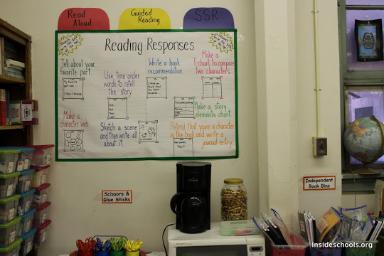 Read Aloud
Guided Reading
SSR
Reading Responses
Tell about your
favorite part
Use time order
words to retell
the story
Write a book
recommendation
Make a
T-chart to compare
two characters
Make a story
elements chart
Make a
character web
Sketch a scene
and then write all
about it
Pretend that you're a character
in the book and write a
journal entry
Scissors &
Glue Sticks
Independent
Book Bins
Insideschools.org